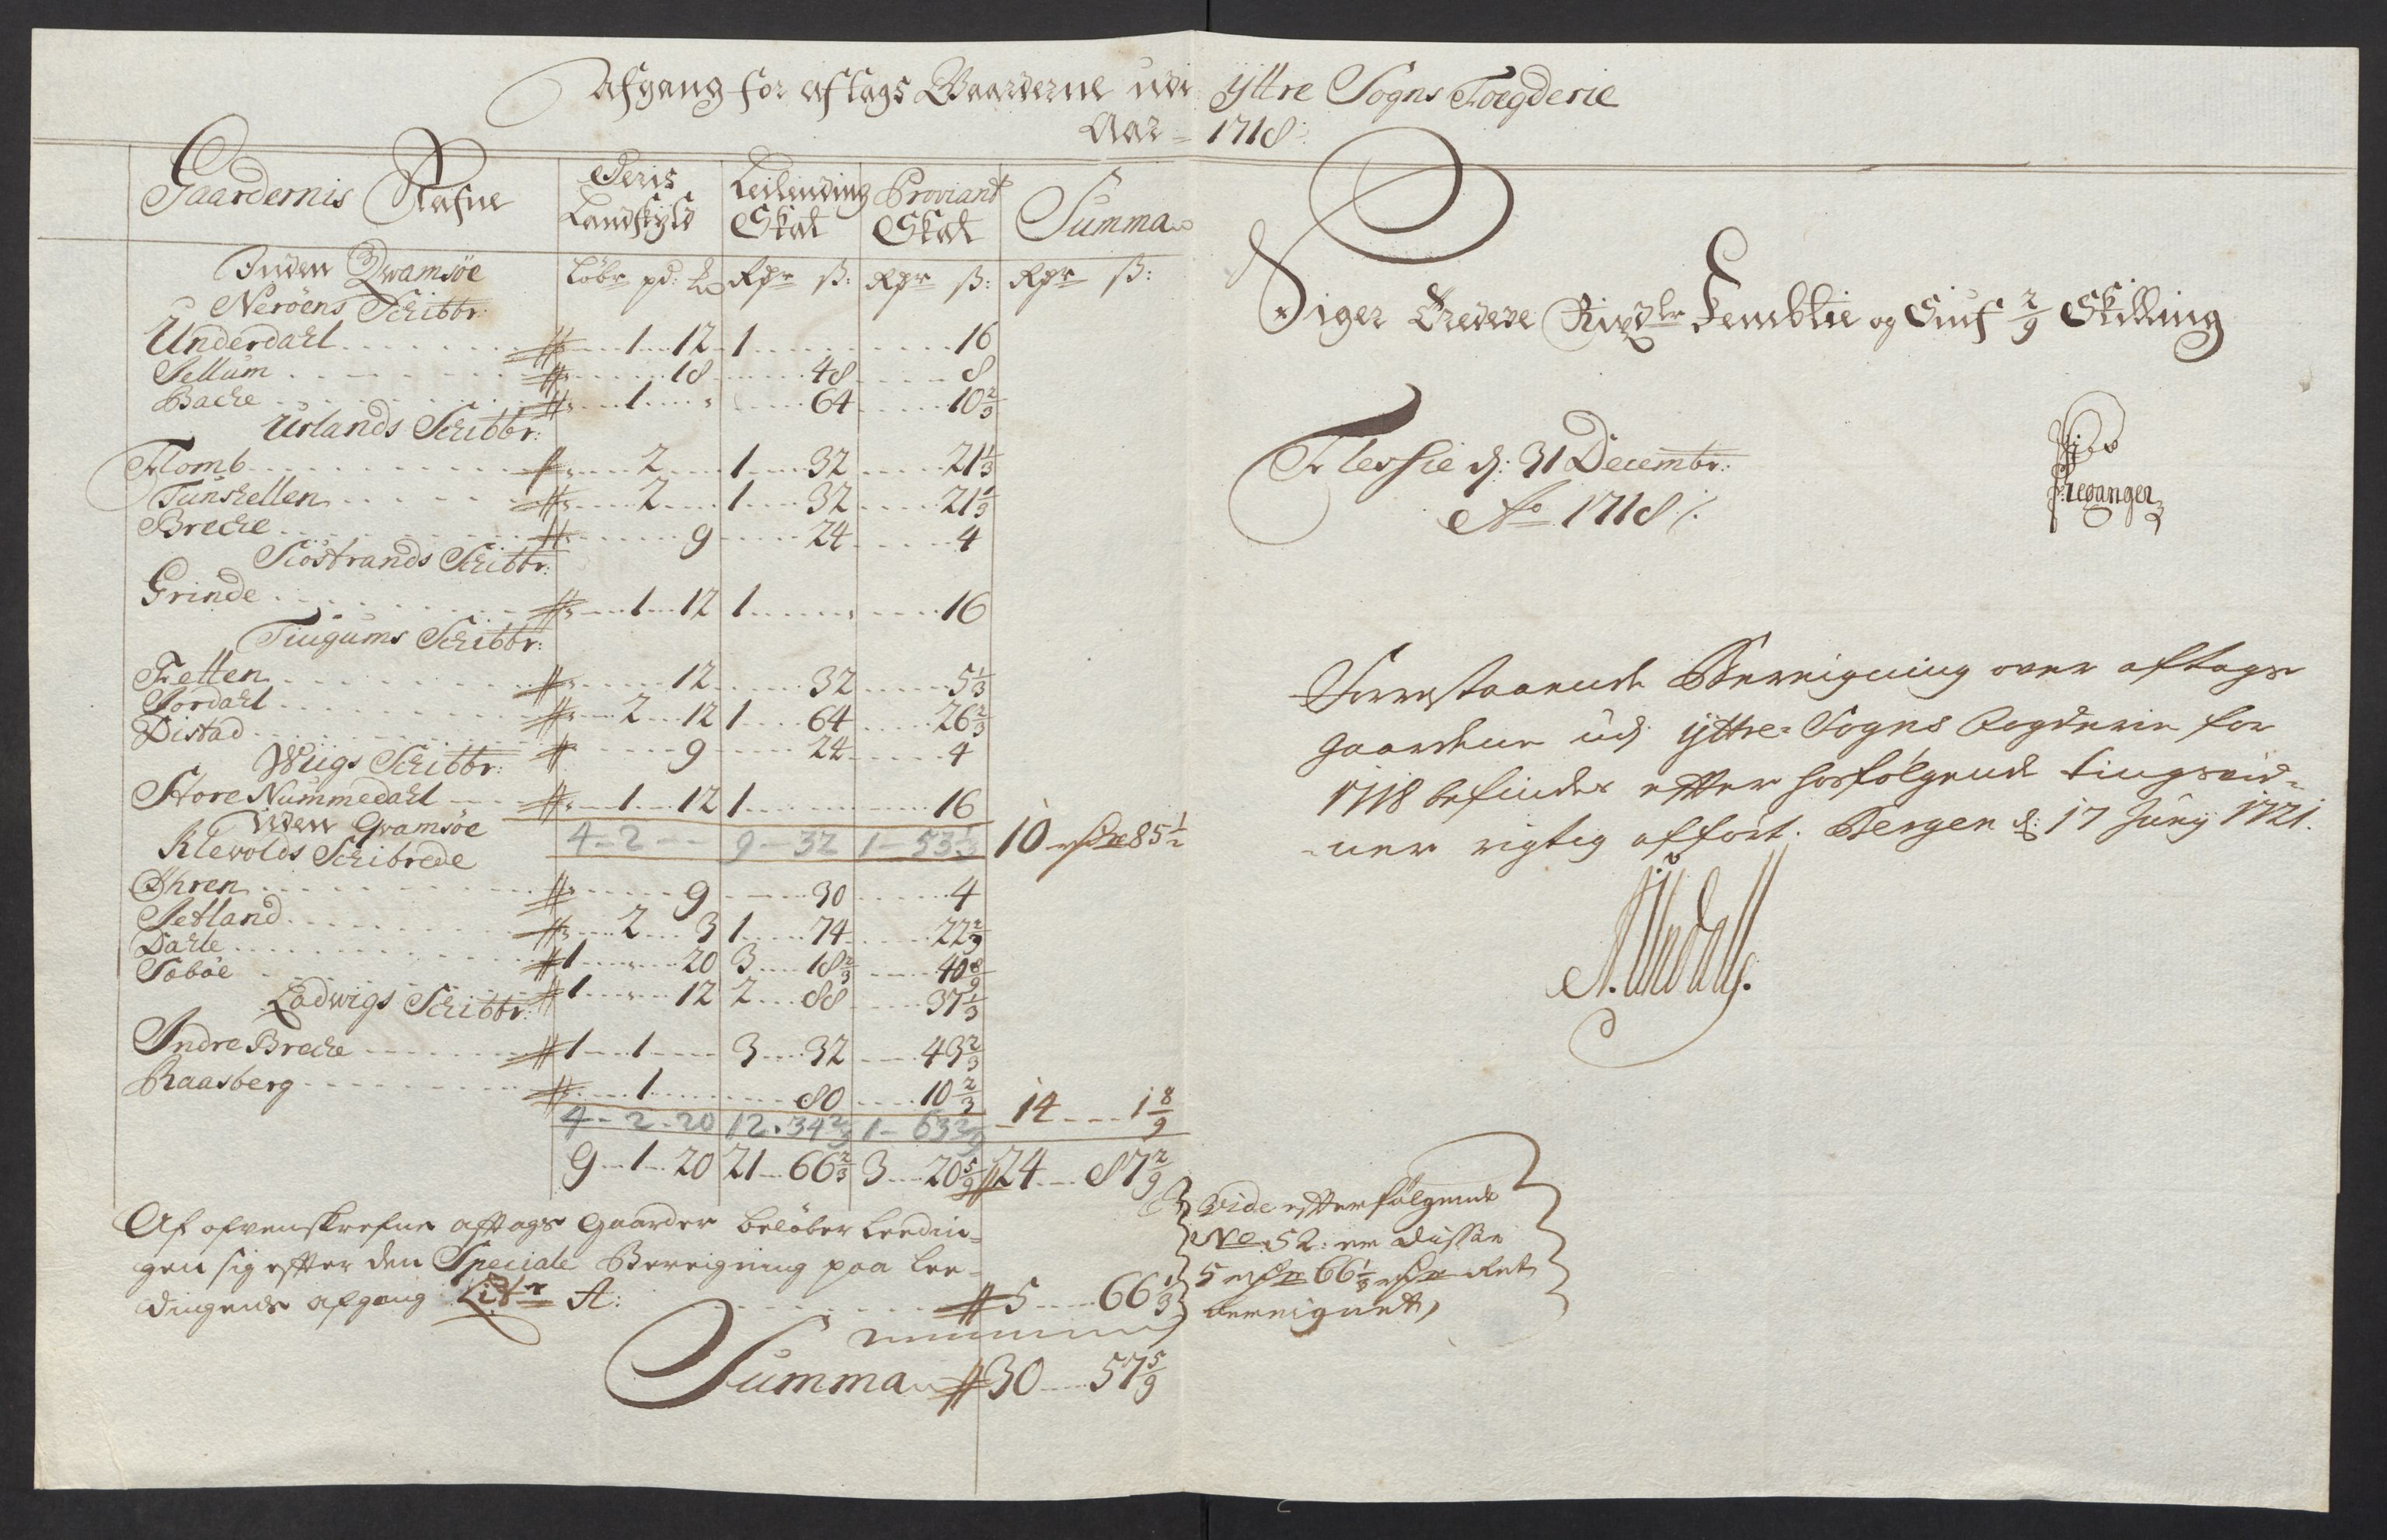 Afgang for aftags Gaarderne udi Yttre Sogns Foegderie
Aar = 1718:
Gaardernis Nafne | Deris Landskyld | Leilending Skat | Proviant Skat | Summa
Inden Qvamsöe | Löbr pd: | Rdr ß: | Rdr ß: | Rdr ß:
Neröens Schibbr:
Underdahl 1 12 | 1 | 16
Jellum 18 | 48 | 8
Bache 1 | 64 | 10 2/3
Urlands Schibbr:
Flomb 2 | 1 32 | 21 1/3
Tunshellen 2 | 1 32 | 21 1/3
Breche 9 | 24 | 4
Siöstrands Schibbr:
Grinde 1 12 | 1 | 16
Tiugums Schibbr:
Fetten 12 | 32 | 5 1/3
Jordahl 2 12 | 1 64 | 26 2/3
Distad 9 | 24 | 4
Wiigs Schibbr:
Store Nummedahl 1 12 | 1 | 16
Uden Qvamsöe | 4 - 2 - | 9 - 32 | 1 - 53 1/3 | 10 85 1/2
Klevolds Schibrede
Ohren 9 | 30 | 4
Jetland 2 3 | 1 74 | 22 2/3
Dahle 1 20 | 3 18 2/3 | 40 8/9
Söböe 1 12 | 2 88 | 37 1/3
Ladwigs Schibbr:
Indre Breche 1 1 | 3 32 | 43 2/3
Raasberg 1 | 80 | 10 2/3
4 - 2 - 20 | 12 - 34 2/3 | 1 - 63 2/9 | 14 1 8/9
9 1 20 | 21 66 2/3 | 3 20 5/9 | 24 87 2/9
Af ofvenskrefne aftags Gaarder belöber Leedin=
gen sig efter den Speciale Beregning paa Lee=
dingens afgang Litr A: 5 66 1/3
Summa 30 57 5/9
Vide efterfölgende
No 52: er disse
5 66 1/3 Ret
beregnet,
Siger Tredeve Rixdlr Fembtie og Siuf 5/9 Skilling
Flessie d: 31 Decembr:
Ao 1718 /.
Forestaaende Beregning over aftags
gaardene udj Yttre Sogns fogderie for
1718 befindes efter hosfölgende tingsvid=
ner rigtig afført. Bergen d: 17 Junij 1721.